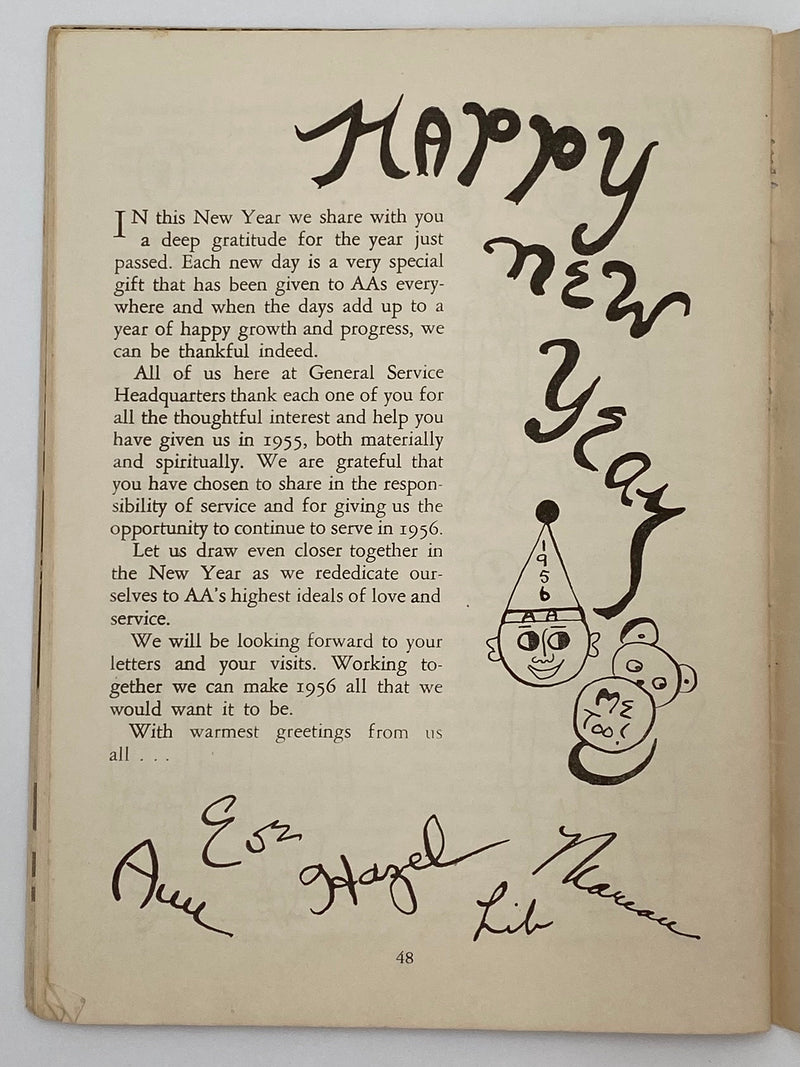 HAPPY
NEW
YEAR
IN this New Year we share with you
a deep gratitude for the year just
passed. Each new day is a very special
gift that has been given to AAs every-
where and when the days add up to a
year of happy growth and progress, we
can be thankful indeed.
All of us here at General Service
Headquarters thank each one of you for
all the thoughtful interest and help you
have given us in 1955, both materially
and spiritually. We are grateful that
you have chosen to share in the respon-
sibility of service and for giving us the
opportunity to continue to serve in 1956.
Let us draw even closer together in
the New Year as we rededicate our-
selves to AA's highest ideals of love and
service.
We will be looking forward to your
letters and your visits. Working to-
gether we can make 1956 all that we
would want it to be.
With warmest greetings from us
all . . .
1
9
5
6
AA
ME
TOO!
Ann
Hazel
Lib
48